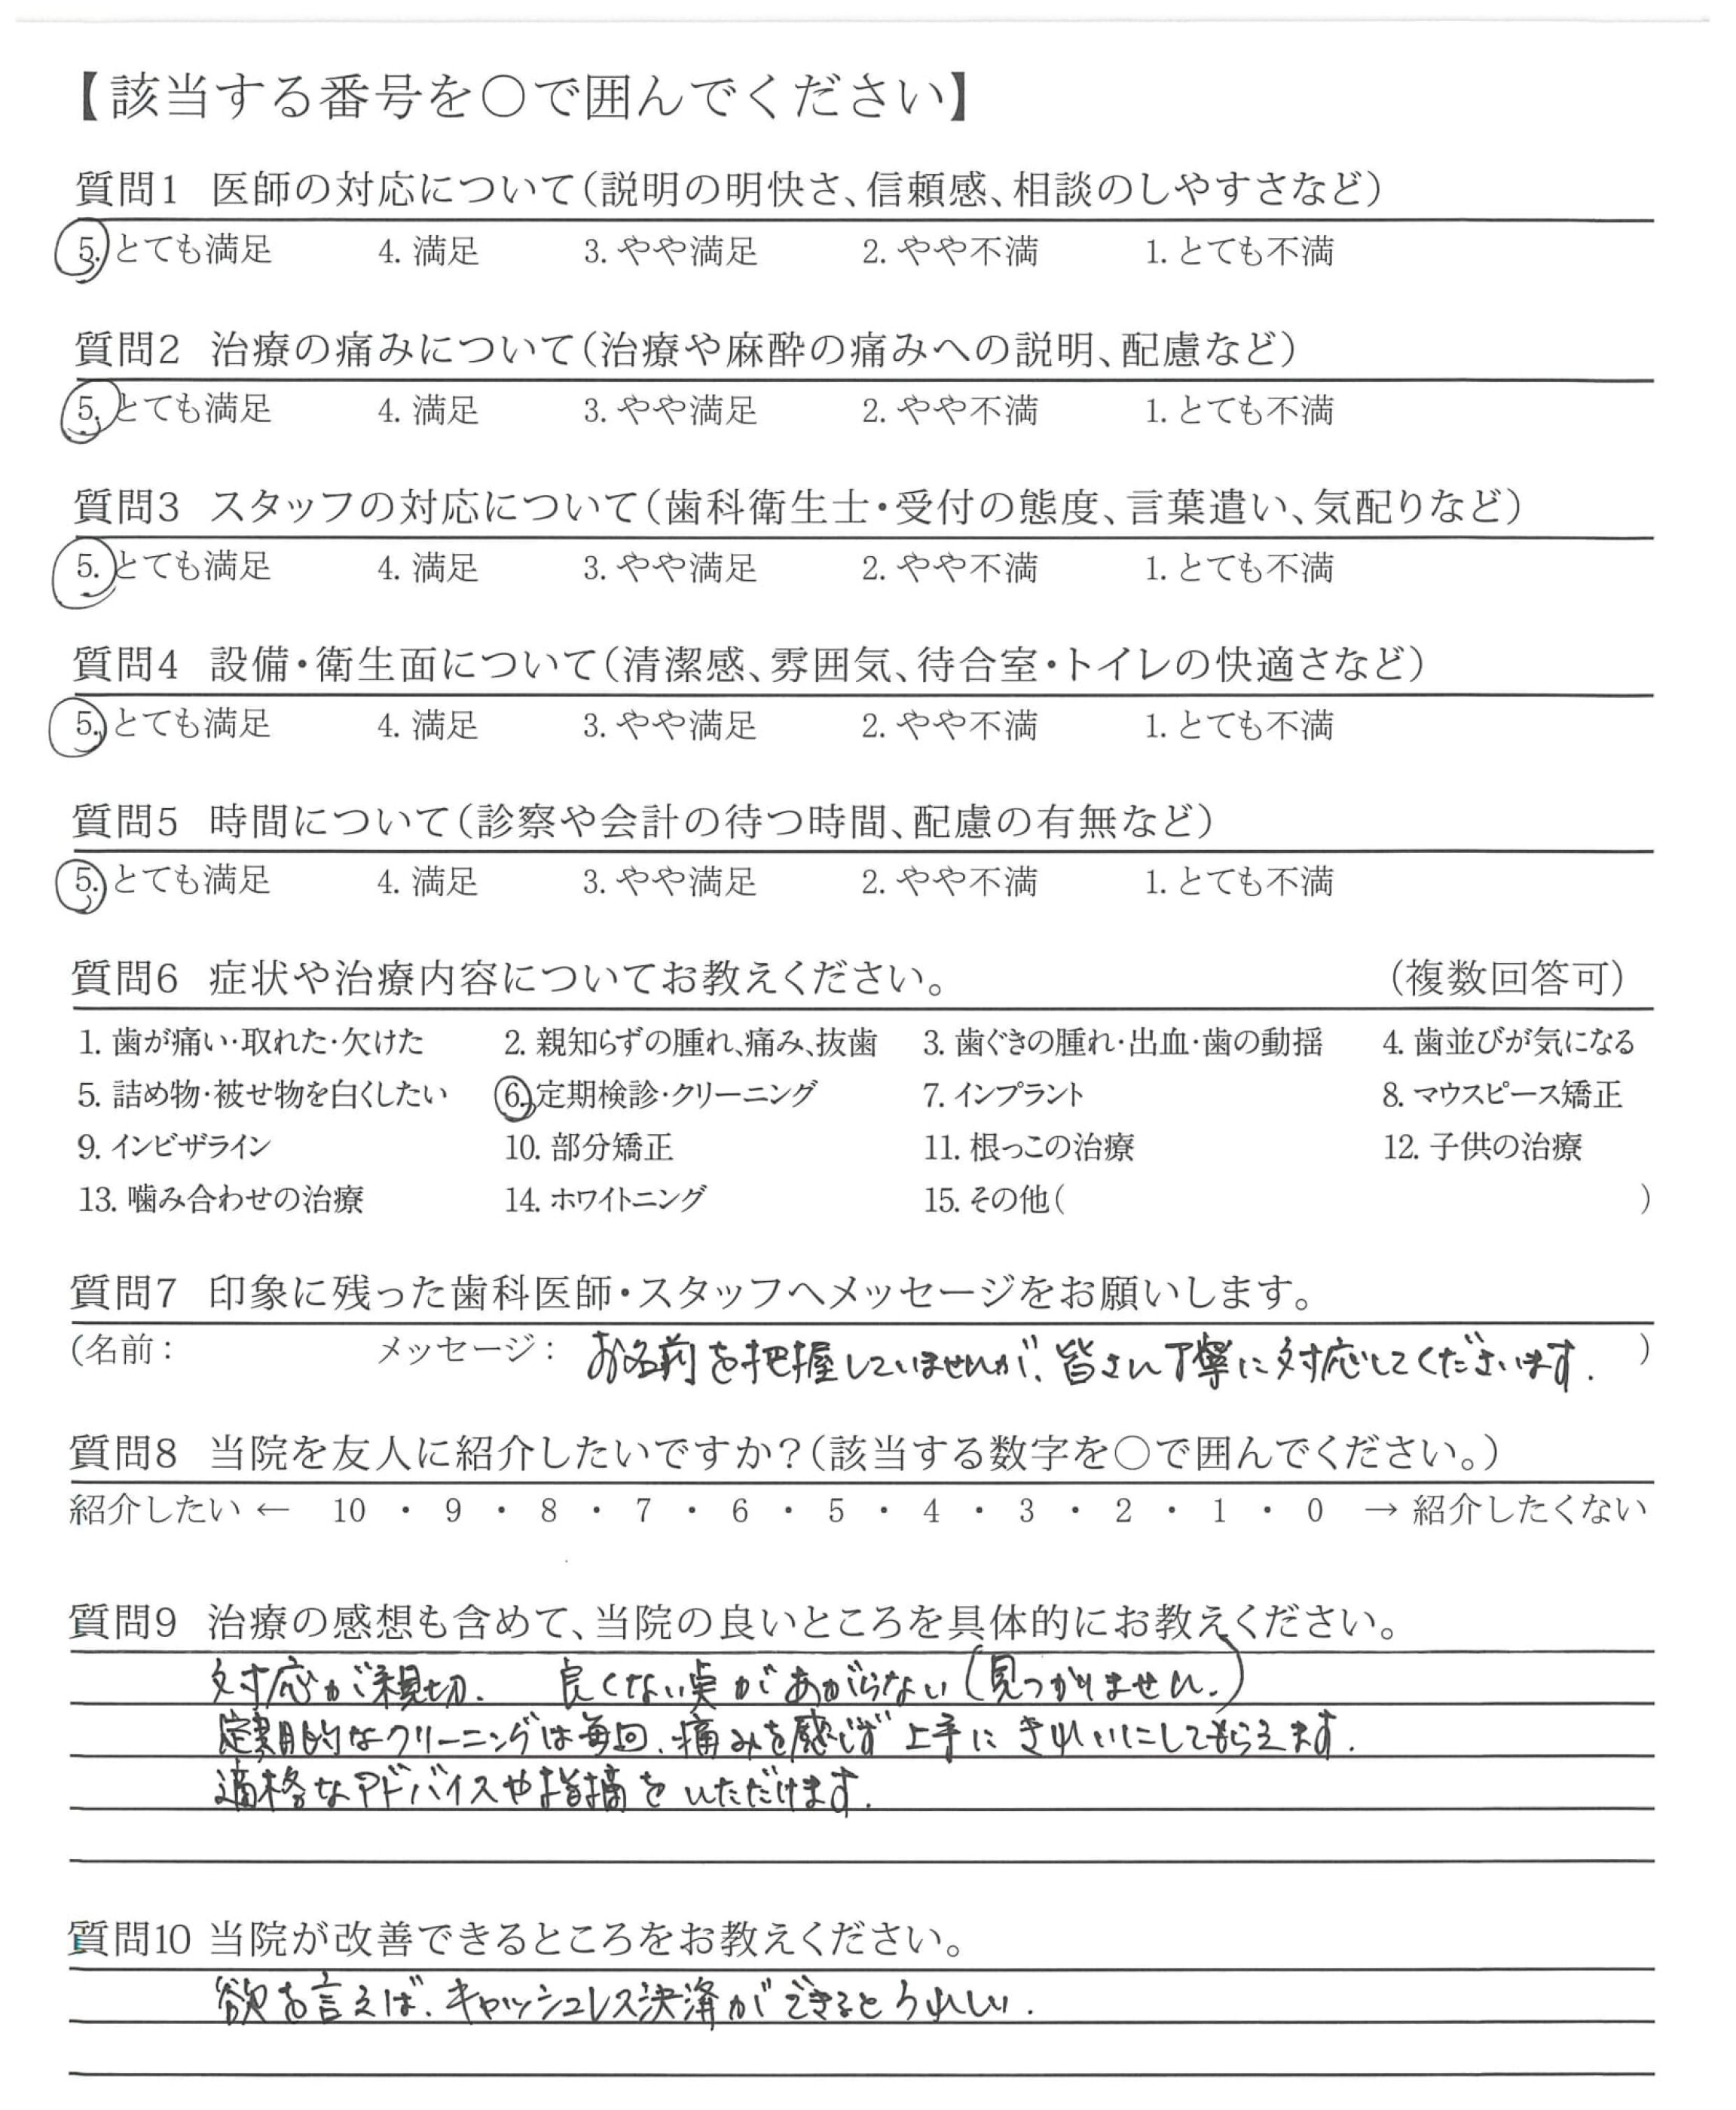 【該当する番号を〇で囲んでください】
質問1 医師の対応について(説明の明快さ、信頼感、相談のしやすさなど)
5. とても満足 4. 満足 3. やや満足 2. やや不満 1. とても不満
質問2 治療の痛みについて(治療や麻酔の痛みへの説明、配慮など)
5. とても満足 4. 満足 3. やや満足 2. やや不満 1. とても不満
質問3 スタッフの対応について(歯科衛生士・受付の態度、言葉遣い、気配りなど)
5. とても満足 4. 満足 3. やや満足 2. やや不満 1. とても不満
質問4 設備・衛生面について(清潔感、雰囲気、待合室・トイレの快適さなど)
5. とても満足 4. 満足 3. やや満足 2. やや不満 1. とても不満
質問5 時間について(診察や会計の待つ時間、配慮の有無など)
5. とても満足 4. 満足 3. やや満足 2. やや不満 1. とても不満
質問6 症状や治療内容についてお教えください。 (複数回答可)
1. 歯が痛い・取れた・欠けた 2. 親知らずの腫れ、痛み、抜歯 3. 歯ぐきの腫れ・出血・歯の動揺 4. 歯並びが気になる
5. 詰め物・被せ物を白くしたい 6. 定期検診・クリーニング 7. インプラント 8. マウスピース矯正
9. インビザライン 10. 部分矯正 11. 根っこの治療 12. 子供の治療
13. 噛み合わせの治療 14. ホワイトニング 15. その他( )
質問7 印象に残った歯科医師・スタッフへメッセージをお願いします。
(名前: メッセージ: お名前を把握していませんが、皆さん丁寧に対応してくださいます. )
質問8 当院を友人に紹介したいですか?(該当する数字を〇で囲んでください。)
紹介したい ← 10 ・ 9 ・ 8 ・ 7 ・ 6 ・ 5 ・ 4 ・ 3 ・ 2 ・ 1 ・ 0 → 紹介したくない
質問9 治療の感想も含めて、当院の良いところを具体的にお教えください。
対応が親切. 良くない点があがらない(見つかりません.)
定期的なクリーニングは毎回、痛みを感じず上手にきれいにしてもらえます.
適格なアドバイスや指摘をいただけます.
質問10 当院が改善できるところをお教えください。
欲を言えば、キャッシュレス決済ができるとうれしい.